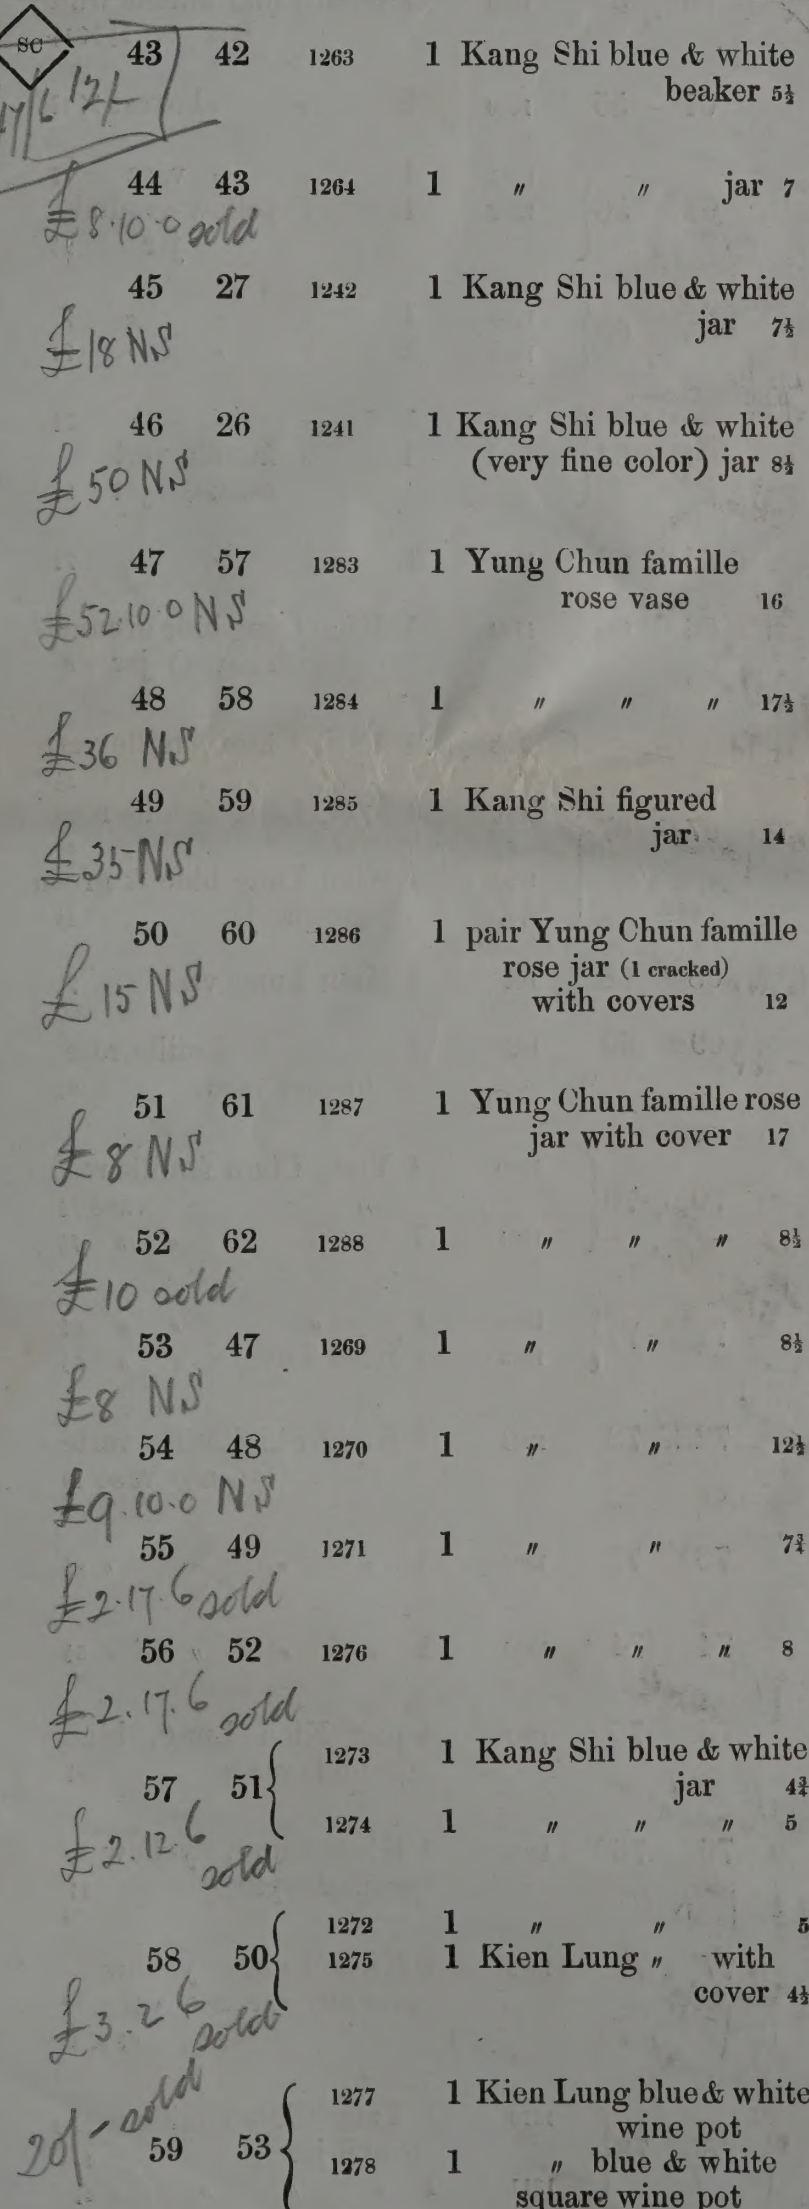 SC 43 42 1263 1 Kang Shi blue & white
beaker 5½
12/-
44 43 1264 1 〃 〃 jar 7
£8.10.0 sold
45 27 1242 1 Kang Shi blue & white
jar 7½
£18 NS
46 26 1241 1 Kang Shi blue & white
(very fine color) jar 8½
£50 NS
47 57 1283 1 Yung Chun famille
rose vase 16
£52.10.0 NS
48 58 1284 1 〃 〃 〃 17½
£36 NS
49 59 1285 1 Kang Shi figured
jar 14
£35 NS
50 60 1286 1 pair Yung Chun famille
rose jar (1 cracked)
with covers 12
£15 NS
51 61 1287 1 Yung Chun famille rose
jar with cover 17
£8 NS
52 62 1288 1 〃 〃 〃 8½
£10 sold
53 47 1269 1 〃 〃 8½
£8 NS
54 48 1270 1 〃 〃 12½
£9.10.0 NS
55 49 1271 1 〃 〃 7¾
£2.17.6 sold
56 52 1276 1 〃 〃 〃 8
£2.17.6 sold
1273 1 Kang Shi blue & white
57 51 jar 4¾
1274 1 〃 〃 〃 5
£2.12.6 sold
1272 1 〃 〃 5
58 50 1275 1 Kien Lung 〃 with
cover 4½
£3.2.6 sold
20/- sold
1277 1 Kien Lung blue & white
wine pot
59 53 1278 1 〃 blue & white
square wine pot